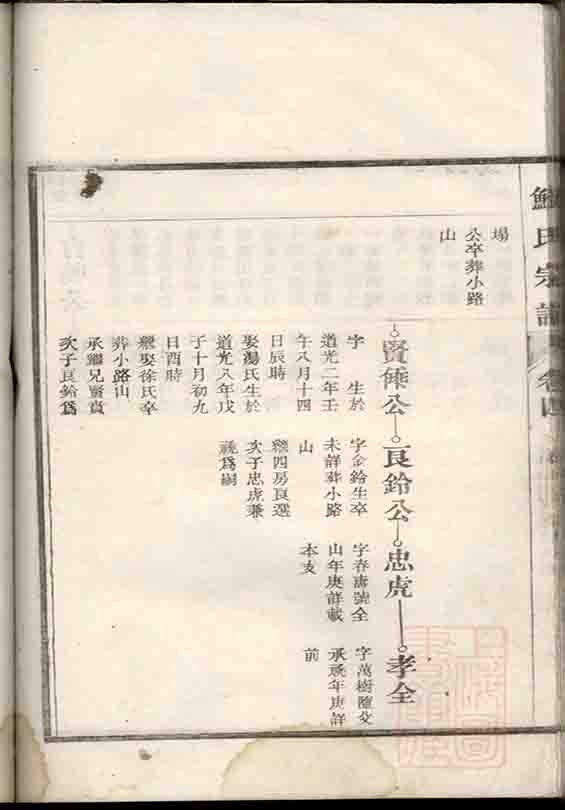 氏宗譜
卷四
塲
公卒葬小路
山
賢倕公
字 生於
道光二年壬
午八月十四
日辰時
娶湯氏生於
道光八年戊
子十月初九
日酉時
繼娶徐氏卒
葬小路山
承繼兄賢貴
次子良鈴爲
良鈴公
字金鈴生卒
未詳葬小路
山
繼四房良選
次子忠虎兼
祧爲嗣
忠虎
字春庚號全
山年庚詳載
本支
孝全
字萬樹隨父
承祧年庚詳
前